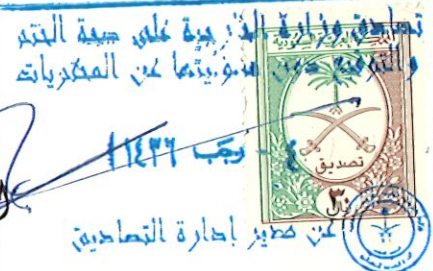 تصادق وزارة الخارجية على صحة الختم
والتوقيع دون مسؤوليتها عن المحتويات
تصديق
٣٠
٤ - رجب ١٤٣٦
عن مدير إدارة التصاديق